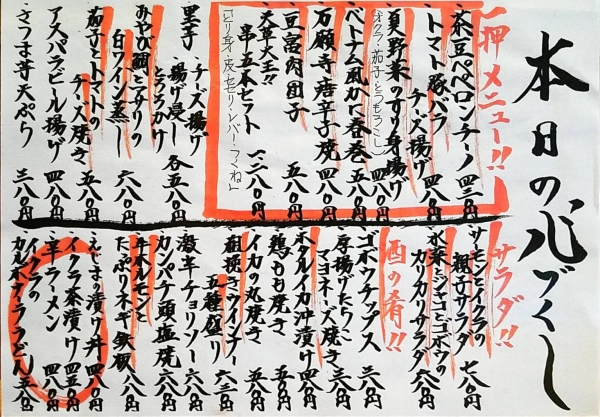 本日の心づくし
一押メニュー!!
茶豆ペペロンチーノ 四三〇円
トマト豚バラ
チーズ揚げ 四八〇円
夏野菜のすり身揚げ 四八〇円
(オクラ・茄子・とうもろこし)
ベトナム風かに春巻 五八〇円
万願寺唐辛子焼 四八〇円
豆富肉団子 五八〇円
天草大王!!
串五本セット 一二八〇円
「とり身・皮・せせり・レバー・つくね」
里芋 チーズ揚げ
揚げ浸し
とろろかけ 各五八〇円
みやび鯛とアサリの
白ワイン蒸し 六八〇円
茄子とトマトの
チーズ焼き 四八〇円
アスパラビール揚げ 四八〇円
さつま芋天ぷら 三八〇円
サラダ!!
サーモンとイクラの
親子サラダ 七八〇円
水菜とジャコとゴボウの
カリカリサラダ 六八〇円
酒の肴!!
ゴボウチップス 三八〇円
厚揚げたらこ
マヨネーズ焼 三八〇円
ホタルイカ沖漬け 四八〇円
鶏もも焼き 五八〇円
イカの丸焼き 五八〇円
粗挽きウインナー
五種盛り 六三〇円
激辛チョリソー 六八〇円
カンパチ頭塩焼 六八〇円
牛ホルモンと
たっぷりネギ鉄板 八八〇円
えじまの漬け丼 四八〇円
イクラ茶漬け 四五〇円
辛ラーメン 四八〇円
イクラの
カルボナーラうどん 五八〇円